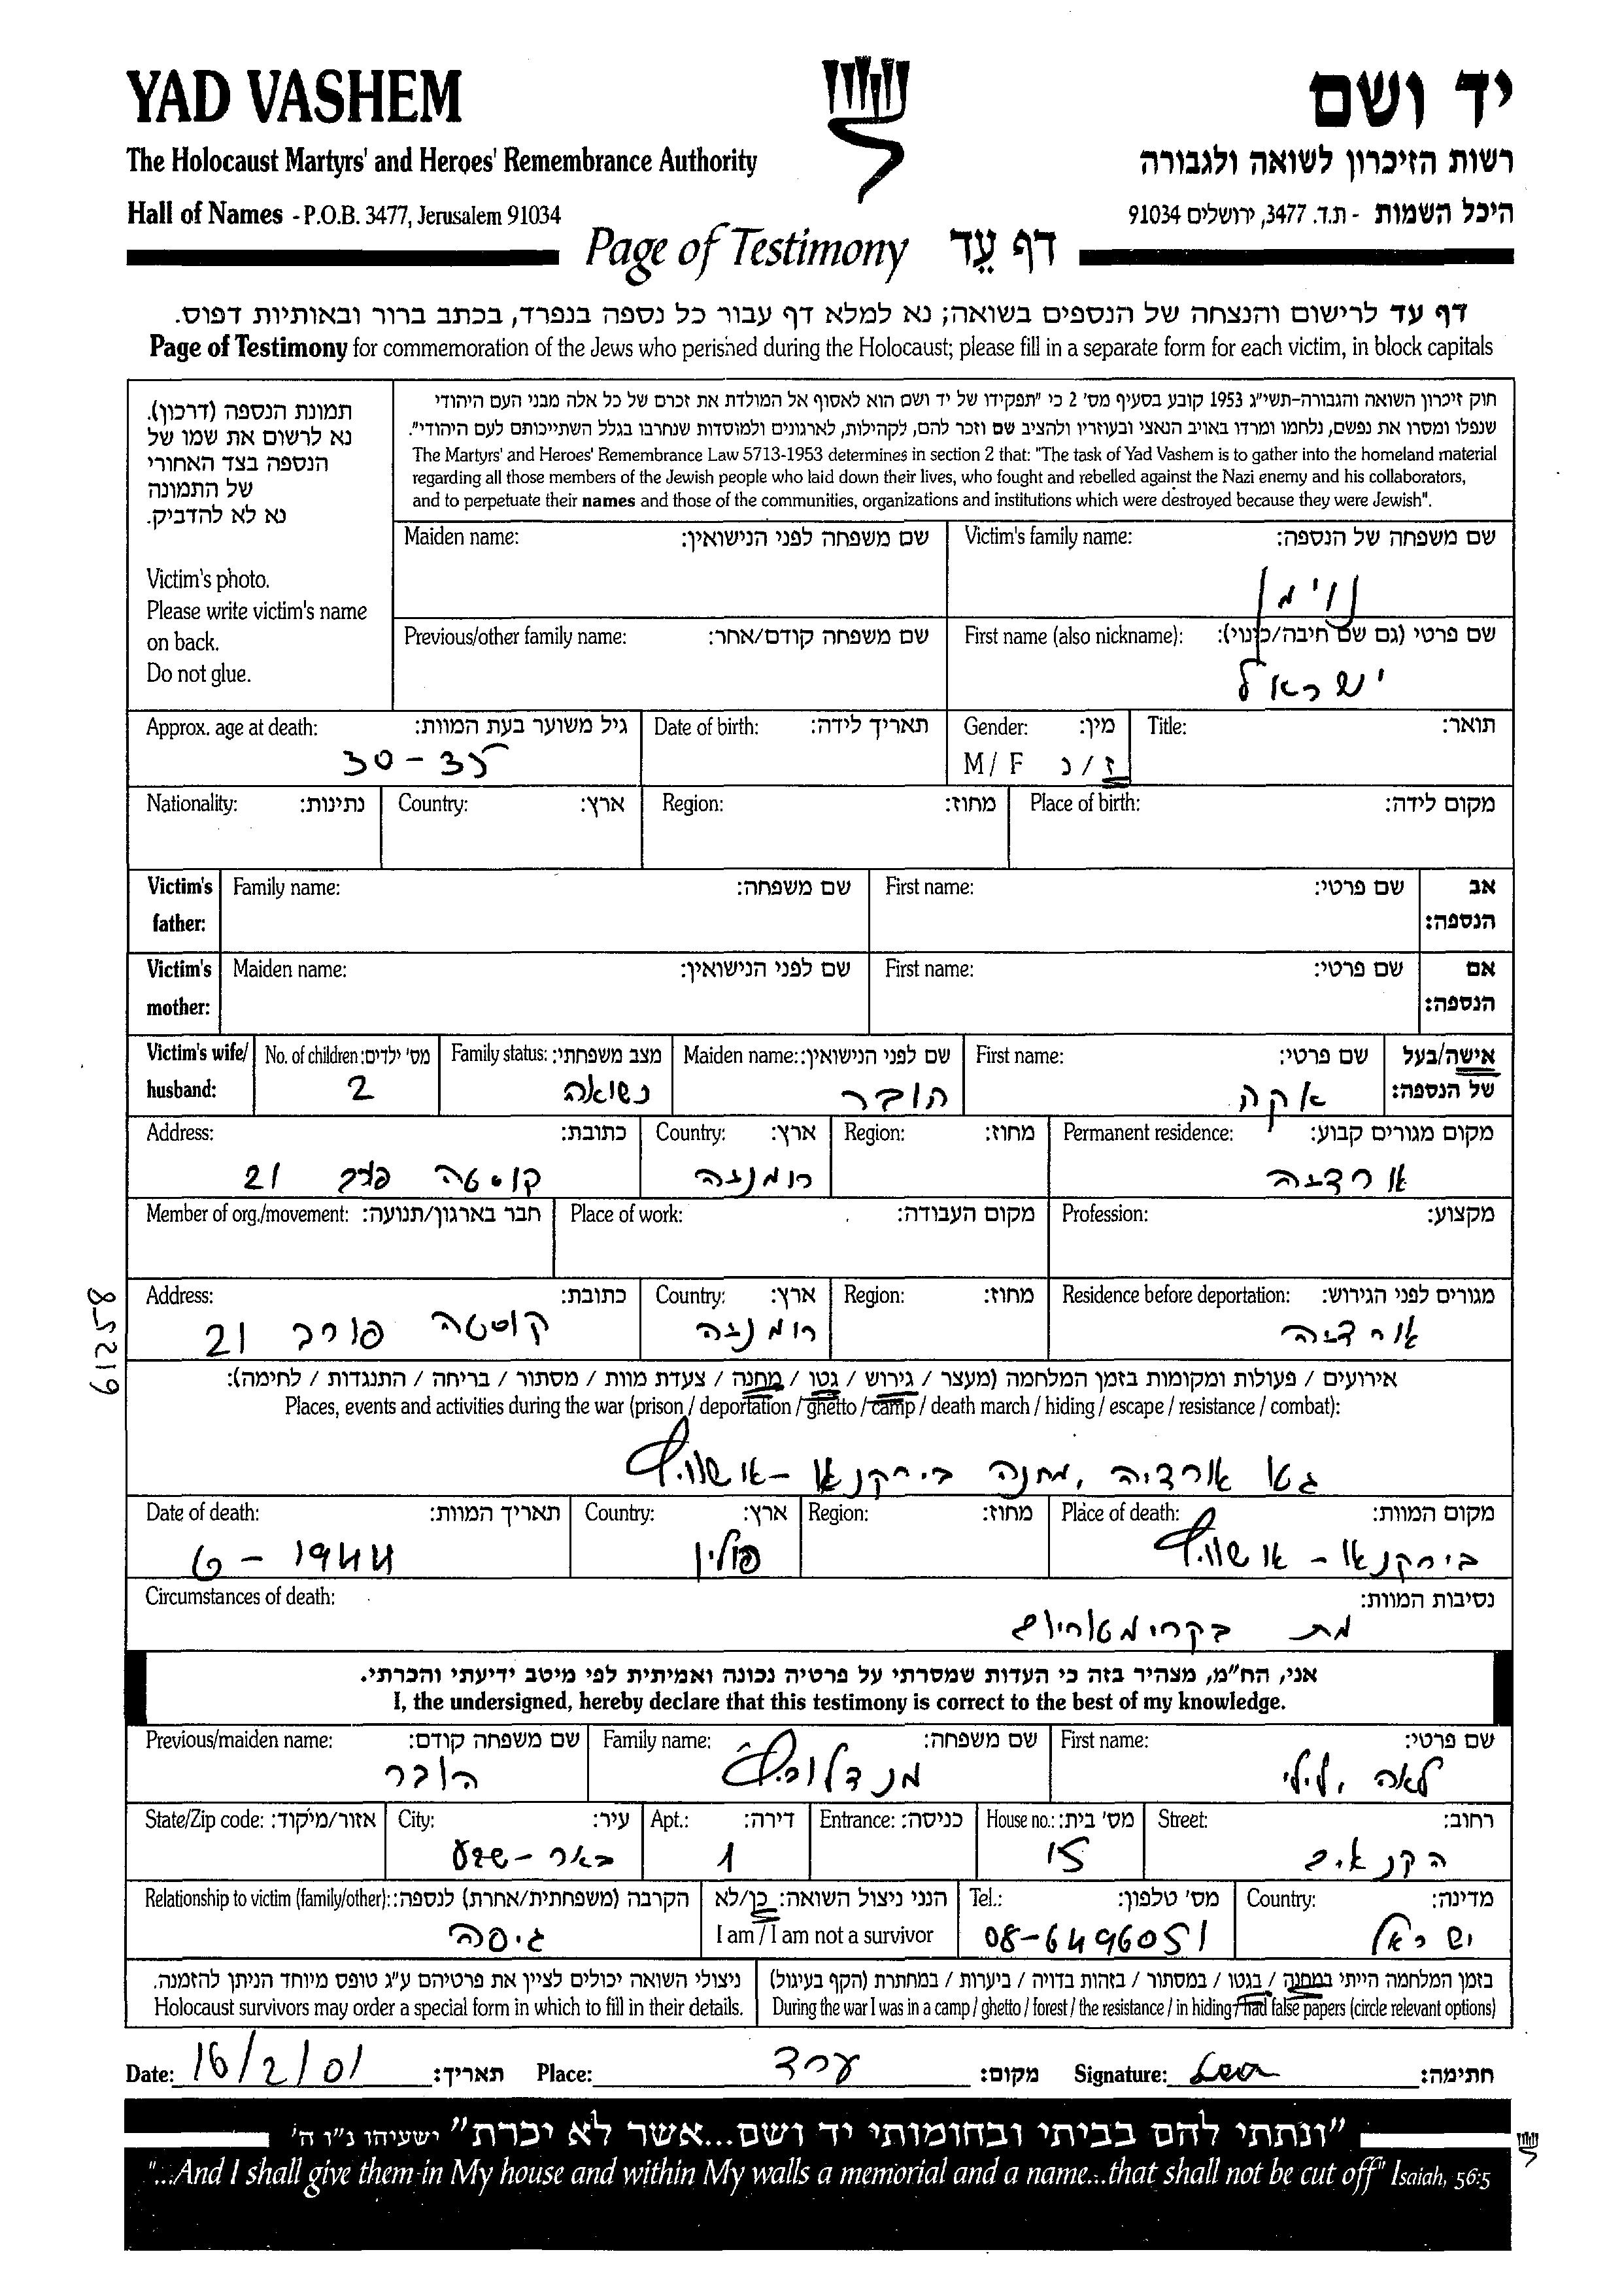 YAD VASHEM
יד ושם
The Holocaust Martyrs' and Heroes' Remembrance Authority
רשות הזיכרון לשואה ולגבורה
Hall of Names - P.O.B. 3477, Jerusalem 91034
היכל השמות - ת.ד. 3477, ירושלים 91034
Page of Testimony דף עֵד
דף עד לרישום והנצחה של הנספים בשואה; נא למלא דף עבור כל נספה בנפרד, בכתב ברור ובאותיות דפוס.
Page of Testimony for commemoration of the Jews who perished during the Holocaust; please fill in a separate form for each victim, in block capitals
תמונת הנספה (דרכון).
נא לרשום את שמו של
הנספה בצד האחורי
של התמונה
נא לא להדביק.
Victim's photo.
Please write victim's name
on back.
Do not glue.
חוק זיכרון השואה והגבורה-תשי"ג 1953 קובע בסעיף מס' 2 כי "תפקידו של יד ושם הוא לאסוף אל המולדת את זכרם של כל אלה מבני העם היהודי
שנפלו ומסרו את נפשם, נלחמו ומרדו באויב הנאצי ובעוזריו ולהציב שם וזכר להם, לקהילות, לארגונים ולמוסדות שנחרבו בגלל השתייכותם לעם היהודי".
The Martyrs' and Heroes' Remembrance Law 5713-1953 determines in section 2 that: "The task of Yad Vashem is to gather into the homeland material
regarding all those members of the Jewish people who laid down their lives, who fought and rebelled against the Nazi enemy and his collaborators,
and to perpetuate their names and those of the communities, organizations and institutions which were destroyed because they were Jewish".
Victim's family name: שם משפחה של הנספה:
נוימן
Maiden name: שם משפחה לפני הנישואין:
First name (also nickname): שם פרטי (גם שם חיבה/כינוי):
ישראל
Previous/other family name: שם משפחה קודם/אחר:
Title: תואר:
Gender: מין:
M / F ז / נ
Date of birth: תאריך לידה:
Approx. age at death: גיל משוער בעת המוות:
30-35
Place of birth: מקום לידה:
Region: מחוז:
Country: ארץ:
Nationality: נתינות:
Victim's father: אב הנספה:
First name: שם פרטי:
Family name: שם משפחה:
Victim's mother: אם הנספה:
First name: שם פרטי:
Maiden name: שם לפני הנישואין:
Victim's wife/husband: אישה/בעל של הנספה:
First name: שם פרטי:
אקה
Maiden name: שם לפני הנישואין:
הובר
Family status: מצב משפחתי:
נשואה
No. of children: מס' ילדים:
2
Permanent residence: מקום מגורים קבוע:
אורדיה
Region: מחוז:
Country: ארץ:
רומניה
Address: כתובת:
קוסטה 21
Profession: מקצוע:
Place of work: מקום העבודה:
Member of org./movement: חבר בארגון/תנועה:
Residence before deportation: מגורים לפני הגירוש:
אורדיה
Region: מחוז:
Country: ארץ:
רומניה
Address: כתובת:
קוסטה פורב 21
61258
אירועים / פעולות ומקומות בזמן המלחמה (מעצר / גירוש / גטו / מחנה / צעדת מוות / מסתור / בריחה / התנגדות / לחימה):
Places, events and activities during the war (prison / deportation / ghetto / camp / death march / hiding / escape / resistance / combat):
גטו אורדיה, מחנה בירקנאו - אושוויץ
Place of death: מקום המוות:
בירקנאו - אושוויץ
Region: מחוז:
Country: ארץ:
פולין
Date of death: תאריך המוות:
6 - 1944
Circumstances of death: נסיבות המוות:
מת בקרימטוריום
אני, הח"מ, מצהיר בזה כי העדות שמסרתי על פרטיה נכונה ואמיתית לפי מיטב ידיעתי והכרתי.
I, the undersigned, hereby declare that this testimony is correct to the best of my knowledge.
First name: שם פרטי:
לאה, לילי
Family name: שם משפחה:
מנדלוביץ
Previous/maiden name: שם משפחה קודם:
הובר
Street: רחוב:
הקנאים
House no.: מס' בית:
15
Entrance: כניסה:
Apt.: דירה:
1
City: עיר:
באר-שבע
State/Zip code: אזור/מיקוד:
Country: מדינה:
ישראל
Tel.: מס' טלפון:
08-6496051
הנני ניצול השואה: כן/לא
I am / I am not a survivor
Relationship to victim (family/other): הקרבה (משפחתית/אחרת) לנספה:
גיסה
בזמן המלחמה הייתי במחנה / בגטו / במסתור / בזהות בדויה / ביערות / במחתרת (הקף בעיגול)
During the war I was in a camp / ghetto / forest / the resistance / in hiding / had false papers (circle relevant options)
ניצולי השואה יכולים לציין את פרטיהם ע"ג טופס מיוחד הניתן להזמנה.
Holocaust survivors may order a special form in which to fill in their details.
Date: 16/2/01 תאריך: Place: ערד מקום: Signature: Lea חתימה:
"ונתתי להם בביתי ובחומותי יד ושם...אשר לא יכרת" ישעיהו נ"ו ה'
"...And I shall give them in My house and within My walls a memorial and a name...that shall not be cut off" Isaiah, 56:5